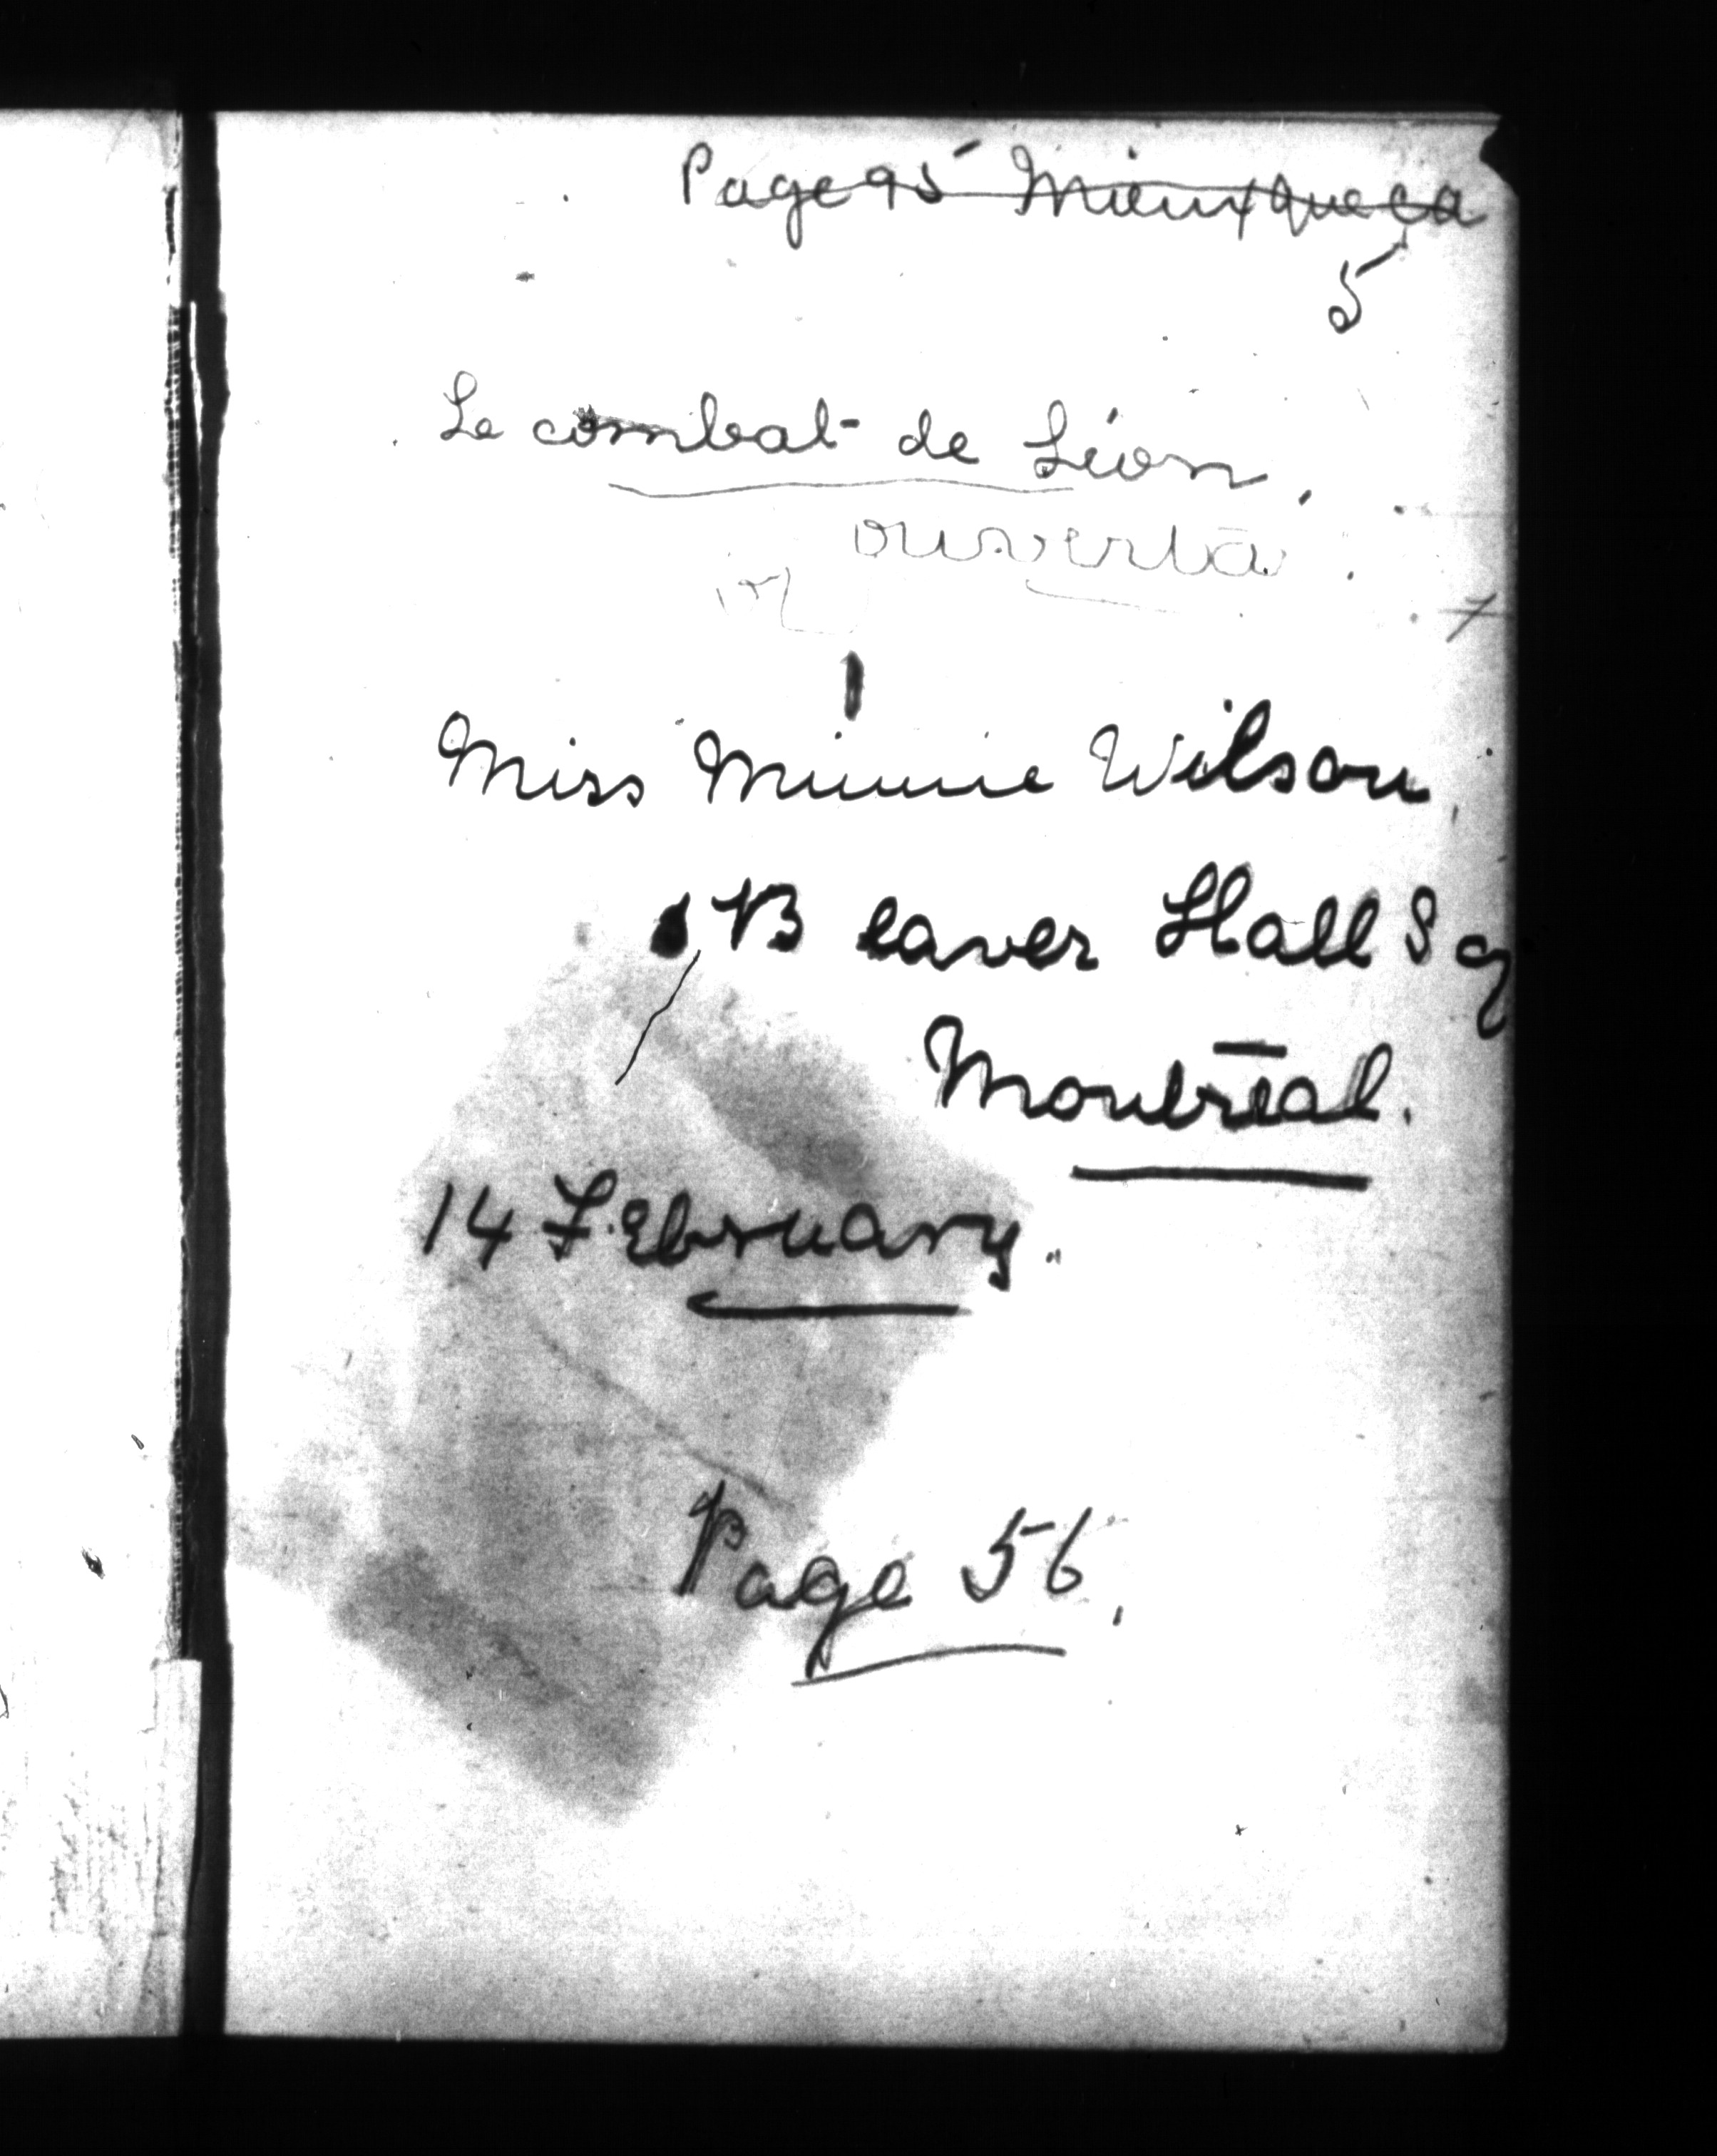 Page 95 Mieux que ça
5
Le combat de Léon,
ouverta.
Miss Minnie Wilson,
B eaver Hall Sq
Montreal.
14 February.
Page 56,